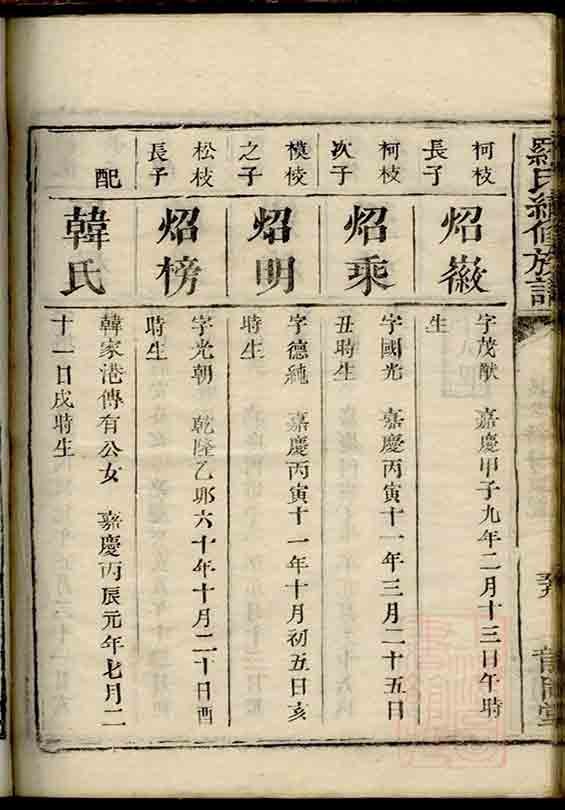 羅氏續修族譜
柯枝
長子
炤徽
字茂猷　嘉慶甲子九年二月十三日午時
生
柯枝
次子
炤乘
字國光　嘉慶丙寅十一年三月二十五日
丑時生
模枝
之子
炤明
字德純　嘉慶丙寅十一年十月初五日亥
時生
松枝
長子
炤榜
字光朝　乾隆乙卯六十年十月二十日酉
時生
配
韓氏
韓家港傳有公女　嘉慶丙辰元年七月二
十一日戌時生